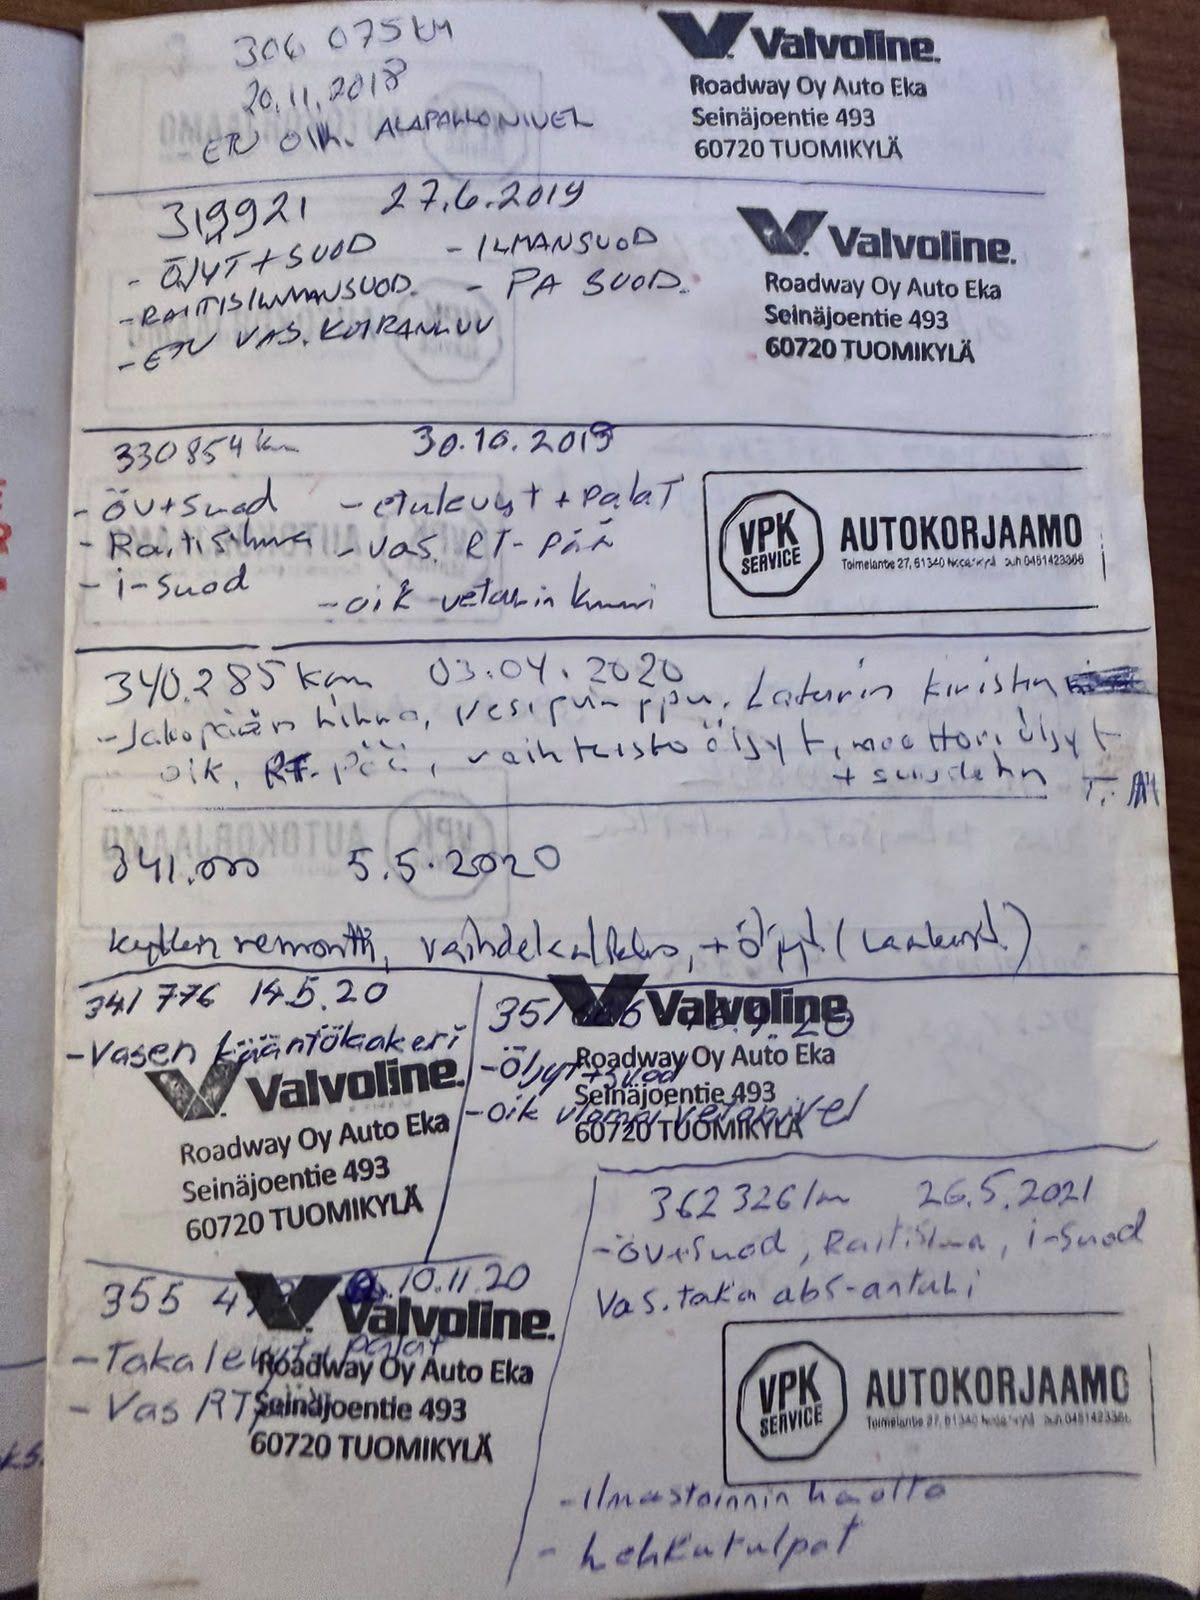 306 075 km
20.11.2018
ETU OIK. ALAPALLONIVEL
Valvoline
Roadway Oy Auto Eka
Seinäjoentie 493
60720 TUOMIKYLÄ
319921 27.6.2019
- ÖJYT + SUOD - ILMANSUOD
- RAITISILMANSUOD. - PA SUOD.
- ETU VAS. KOIRANLUU
Valvoline
Roadway Oy Auto Eka
Seinäjoentie 493
60720 TUOMIKYLÄ
330854 km 30.10.2019
- öv+suod - etulevyt + palaT
- Raitisilma - vas. RT-pää
- i-suod - oik vetarin kumi
VPK SERVICE
AUTOKORJAAMO
340.285 km 03.04.2020
- Jakopään hihna, vesipumppu, Laturin kiristin
oik. RT-pää, vaihteisto öljyt, moottori öljyt
+ suodatin
341.000 5.5.2020
kytkin remontti, + öljyt.
341 776 14.5.20
- Vasen kääntölaakeri
Valvoline
Roadway Oy Auto Eka
Seinäjoentie 493
60720 TUOMIKYLÄ
- Öljyt+suod
- oik ulompi vetonivel
Valvoline
Roadway Oy Auto Eka
Seinäjoentie 493
60720 TUOMIKYLÄ
355 10.11.20
- Takalevyt, palat
- Vas RT
Valvoline
Roadway Oy Auto Eka
Seinäjoentie 493
60720 TUOMIKYLÄ
362 326 km 26.5.2021
- öv+suod, Raitisilma, i-suod
Vas. takan abs-anturi
VPK SERVICE
AUTOKORJAAMO
- Ilmastoinnin huolto
- hehkutulpat